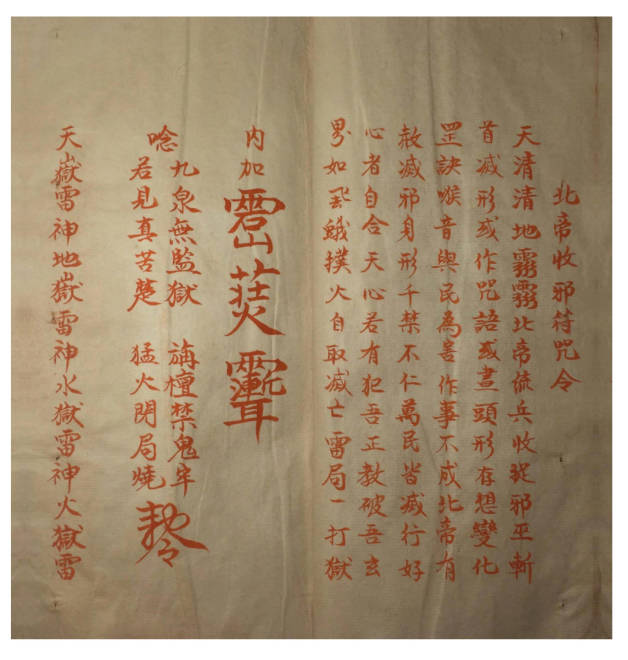 北帝收邪符咒令
天清清地霧霧北帝統兵收捉邪巫斬
首滅形或作咒語或畫頭形存想變化
罡訣喉音與民為害作事不成北帝有
赦滅邪身形千禁不仁萬民皆滅行好
心者自合天心若有犯吾正教破吾玄
界如飛蛾撲火自取滅亡雷局一打獄
內加
唸
九泉無監獄 旃檀禁鬼牢
若見真苦楚 猛火閉局燒
天嶽雷神地嶽雷神水獄雷神火獄雷